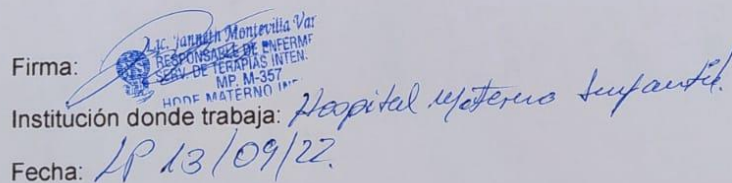 Lic. Janneth Montevilla Var
RESPONSABLE DE ENFERME
SERV. DE TERAPIAS INTEN.
Firma:
MP. M-357
MATERNO IN
Institución donde trabaja: Hospital Materno Infantil.
Fecha: LP 13/09/22.